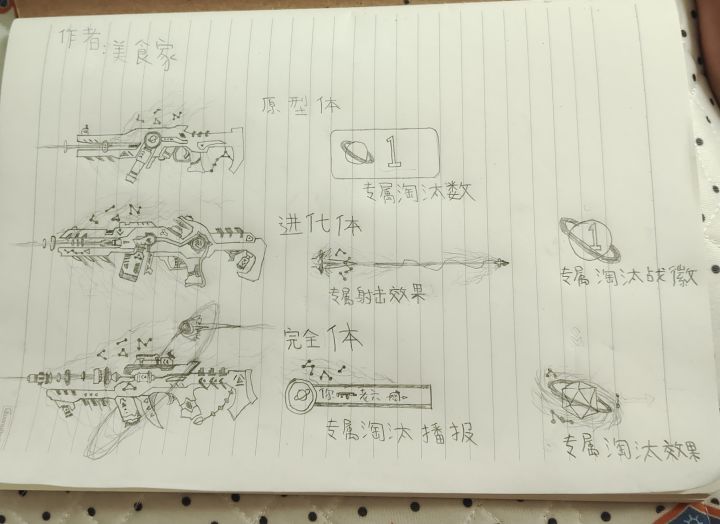 作者:美食家
原型体
1
专属淘汰数
进化体
专属射击效果
1
专属淘汰战徽
完全体
你
老六
专属淘汰播报
专属淘汰效果